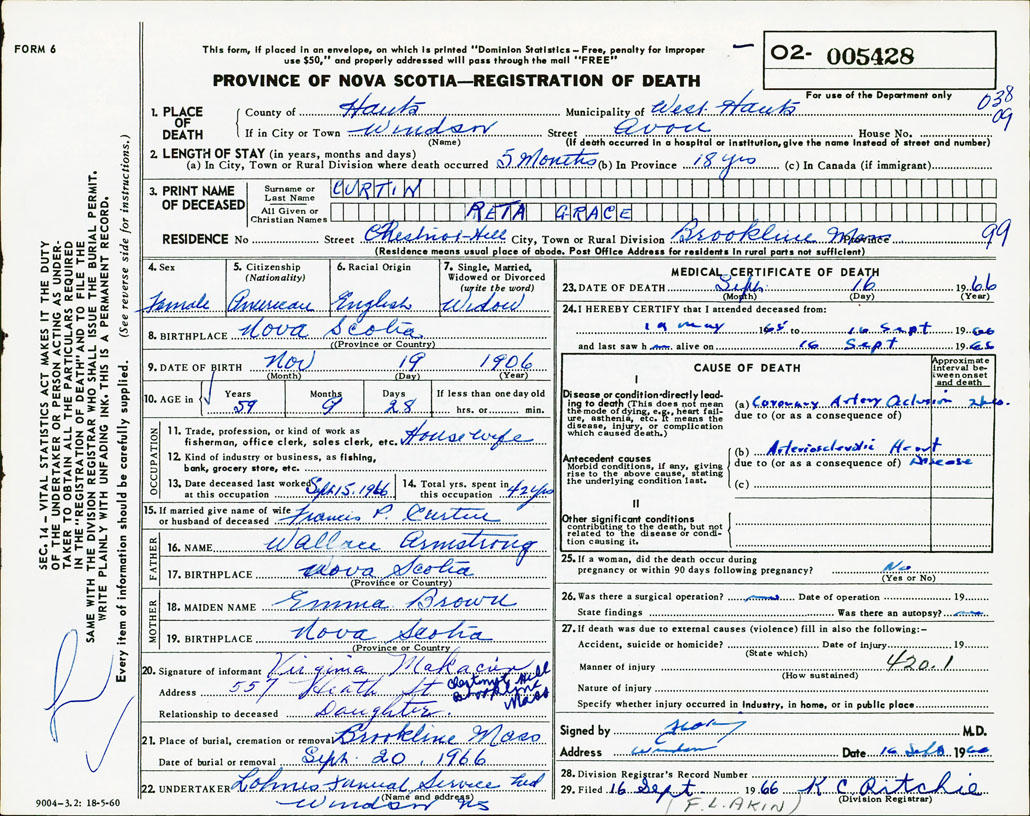 FORM 6
This form, if placed in an envelope, on which is printed "Dominion Statistics – Free, penalty for improper
use $50," and properly addressed will pass through the mail "FREE"
02- 005428
For use of the Department only
PROVINCE OF NOVA SCOTIA—REGISTRATION OF DEATH
038
09
1. PLACE OF DEATH
County of Hants Municipality of West Hants
If in City or Town Windsor Street Avon House No.
(Name) (If death occurred in a hospital or institution, give the name instead of street and number)
2. LENGTH OF STAY (in years, months and days)
(a) In City, Town or Rural Division where death occurred 5 Months (b) In Province 18 yrs (c) In Canada (if immigrant)
3. PRINT NAME OF DECEASED
Surname or Last Name CURTIN
All Given or Christian Names RETA GRACE
RESIDENCE No Street Chestnut-Hill City, Town or Rural Division Brookline Mass Province 99
(Residence means usual place of abode. Post Office Address for residents in rural parts not sufficient)
4. Sex Female
5. Citizenship (Nationality) American
6. Racial Origin English
7. Single, Married, Widowed or Divorced (write the word) Widow
8. BIRTHPLACE Nova Scotia
(Province or Country)
9. DATE OF BIRTH Nov 19 1906
(Month) (Day) (Year)
10. AGE in Years 59 Months 9 Days 28 If less than one day old hrs. or min.
OCCUPATION
11. Trade, profession, or kind of work as
fisherman, office clerk, sales clerk, etc. Housewife
12. Kind of industry or business, as fishing,
bank, grocery store, etc.
13. Date deceased last worked
at this occupation Sept 15, 1966
14. Total yrs. spent in
this occupation 42 yrs
15. If married give name of wife
or husband of deceased Francis P. Curtin
FATHER
16. NAME Wallace Armstrong
17. BIRTHPLACE Nova Scotia
(Province or Country)
MOTHER
18. MAIDEN NAME Emma Brown
19. BIRTHPLACE Nova Scotia
(Province or Country)
20. Signature of informant Virginia
Address 557 Heath St Chestnut Hill
Brookline
Mass
Relationship to deceased Daughter.
21. Place of burial, cremation or removal Brookline Mass
Date of burial or removal Sept. 20, 1966
22. UNDERTAKER Lohnes Funeral Service Ltd
(Name and address)
Windsor NS
MEDICAL CERTIFICATE OF DEATH
23. DATE OF DEATH Sept. 16 1966
(Month) (Day) (Year)
24. I HEREBY CERTIFY that I attended deceased from:
19 May 1965 to 16 Sept 1966
and last saw h alive on 16 Sept 1966
CAUSE OF DEATH
Approximate interval between onset and death
I
Disease or condition directly lead-
ing to death (This does not mean
the mode of dying, e.g., heart fail-
ure, asthenia, etc. It means the
disease, injury, or complication
which caused death.)
(a) Coronary Artery Occlusion
due to (or as a consequence of)
Antecedent causes
Morbid conditions, if any, giving
rise to the above cause, stating
the underlying condition last.
(b) Arteriosclerotic Heart
due to (or as a consequence of) Disease
(c)
II
Other significant conditions
contributing to the death, but not
related to the disease or condi-
tion causing it.
25. If a woman, did the death occur during
pregnancy or within 90 days following pregnancy? No
(Yes or No)
26. Was there a surgical operation? Date of operation 19
State findings Was there an autopsy?
27. If death was due to external causes (violence) fill in also the following:–
Accident, suicide or homicide? Date of injury 19
(State which)
Manner of injury 420.1
(How sustained)
Nature of injury
Specify whether injury occurred in industry, in home, or in public place
Signed by M.D.
Address Windsor Date 16 Sept 1966
28. Division Registrar's Record Number
29. Filed 16 Sept. 1966 K C Ritchie
(Division Registrar)
(F.L. AKIN)
SEC. 14 – VITAL STATISTICS ACT MAKES IT THE DUTY
OF THE UNDERTAKER OR PERSON ACTING AS UNDER-
TAKER TO OBTAIN ALL THE PARTICULARS REQUIRED
IN THE "REGISTRATION OF DEATH" AND TO FILE THE
SAME WITH THE DIVISION REGISTRAR WHO SHALL ISSUE THE BURIAL PERMIT.
WRITE PLAINLY WITH UNFADING INK. THIS IS A PERMANENT RECORD.
Every item of information should be carefully supplied. (See reverse side for instructions.)
9004-3.2: 18-5-60